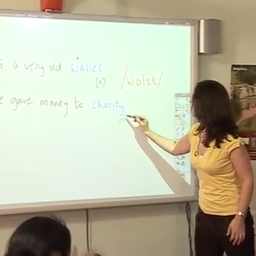 s a very old wallet
(n) /wɒlɪt/
e gave money to charity